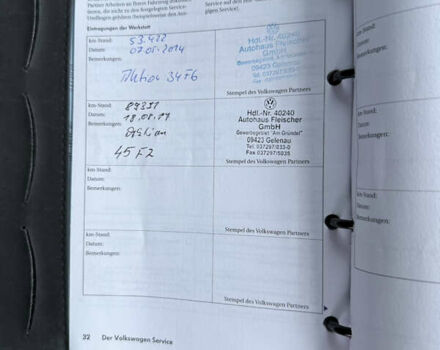 Partner Arbeiten an Ihrem Fahrzeug
die nicht zu den festgelegten Service-
Umfängen gehören (beispielsweise den
Service auf den
gigen Service).
Eintragungen der Werkstatt
km-Stand: 53.422
Datum: 07.05.2014
Bemerkungen:
Aktion 34F6
Hdl.-Nr. 40240
Autohaus Fleischer
GmbH
09423 Gelenau
Tel. 037297/833-0
Stempel des Volkswagen Partners
km-Stand:
Datum: 18.08.17
Bemerkungen: Aktion
45F2
Hdl.-Nr. 40240
Autohaus Fleischer
GmbH
Gewerbegebiet "Am Gründel"
09423 Gelenau
Tel. 037297/833-0
Fax 037297/5035
Stempel des Volkswagen Partners
km-Stand:
Datum:
Bemerkungen:
Stempel des Volkswagen Partners
km-Stand:
Datum:
Bemerkungen:
Stempel des Volkswagen Partners
32 Der Volkswagen Service
km-Stand:
Datum:
Bemerkungen:
km-Stand:
Datum:
Bemerkungen: